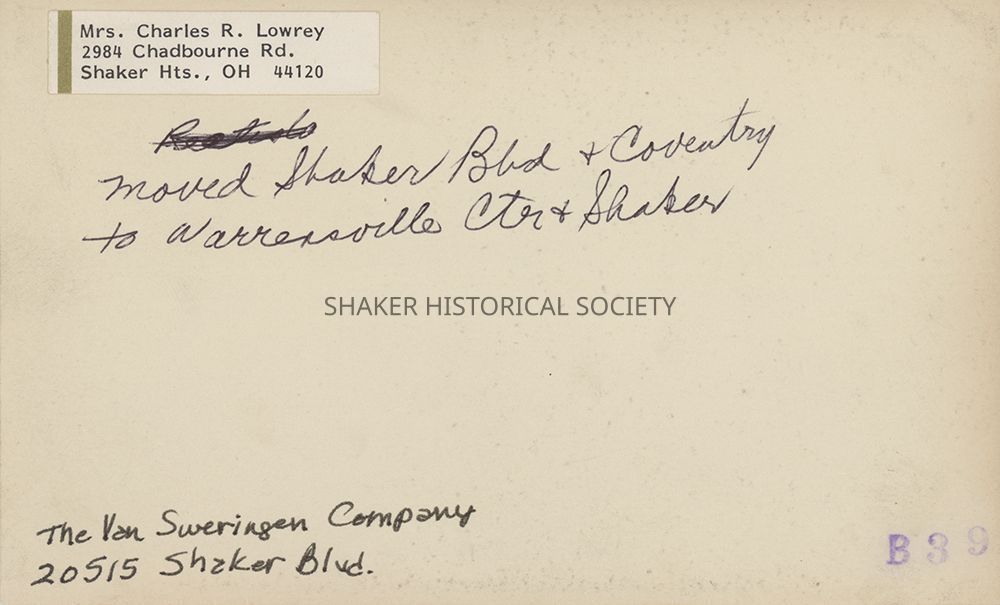 Mrs. Charles R. Lowrey
2984 Chadbourne Rd.
Shaker Hts., OH 44120
moved Shaker Blvd + Coventry
to Warrensville Ctr + Shaker
SHAKER HISTORICAL SOCIETY
The Van Sweringen Company
20515 Shaker Blvd.
B39